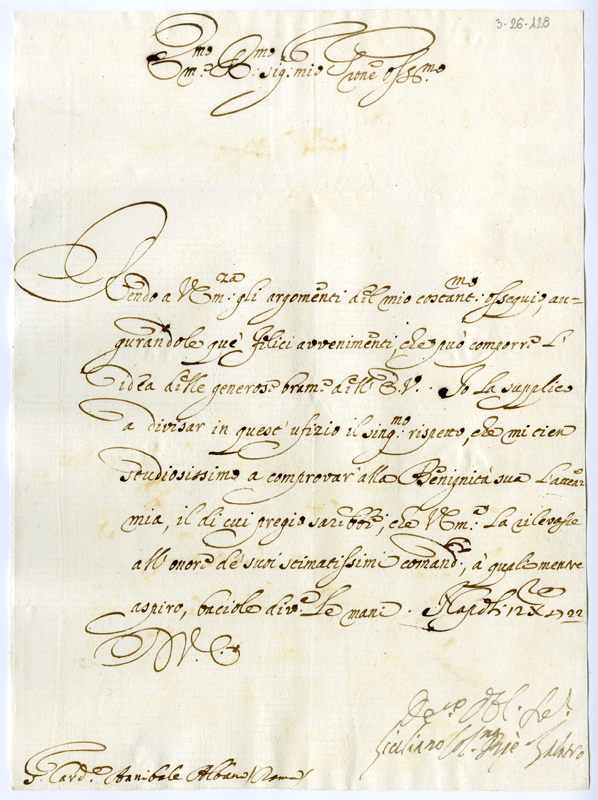 3-26-128
Em.mo R.mo
Sig: mio Pron̄e oss.mo
Rendo a V Em:za gli argomenti del mio costant:mo ossequio, au=
gurandole què felici avvenimenti, che può comporre l'
idea delle generose brame dell' E V. Io la supplico
a divisar in quest' ufizio il sing.mo rispetto, che mi tien
studiosissimo a comprovar' alla Benignità sua l'atten
mia, il di cui pregio sarebbe, che V Em: la rilevasse
all' onore de' suoi stimatissimi comand:, à quali mentre
aspiro, baciole div.e le mani. Napoli 12 X.re 1722
D V. E
Siciliano
S. Card.e Anibale Albani (Roma)